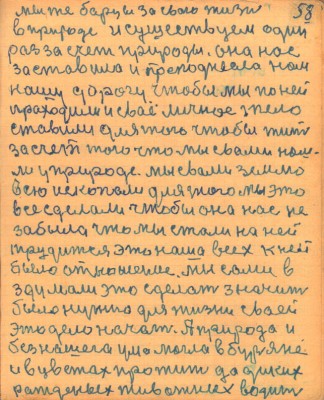 58
мы же барцы за сваю жизн
в природе и существуем один
раз за счет природы. она нас
заставила и преподнесла нам
нашу дорогу чтобы мы по ней
праходили и сваё личное
ставили для того чтобы жит
за счет того что мы с вами наш-
ли у природе. мы с вами землю
всю ископали для этого мы это
все сделали чтобы она нас не
забыла что мы стали на ней
трудится это наша всех к ней
было отношение. мы сами в
здумали это сделат значит
было нужно для жизни сваей
это дело начат. А природа и
без нашега ума могла в бурьяне
и в цветах прожит да диких
рожденых животных водит